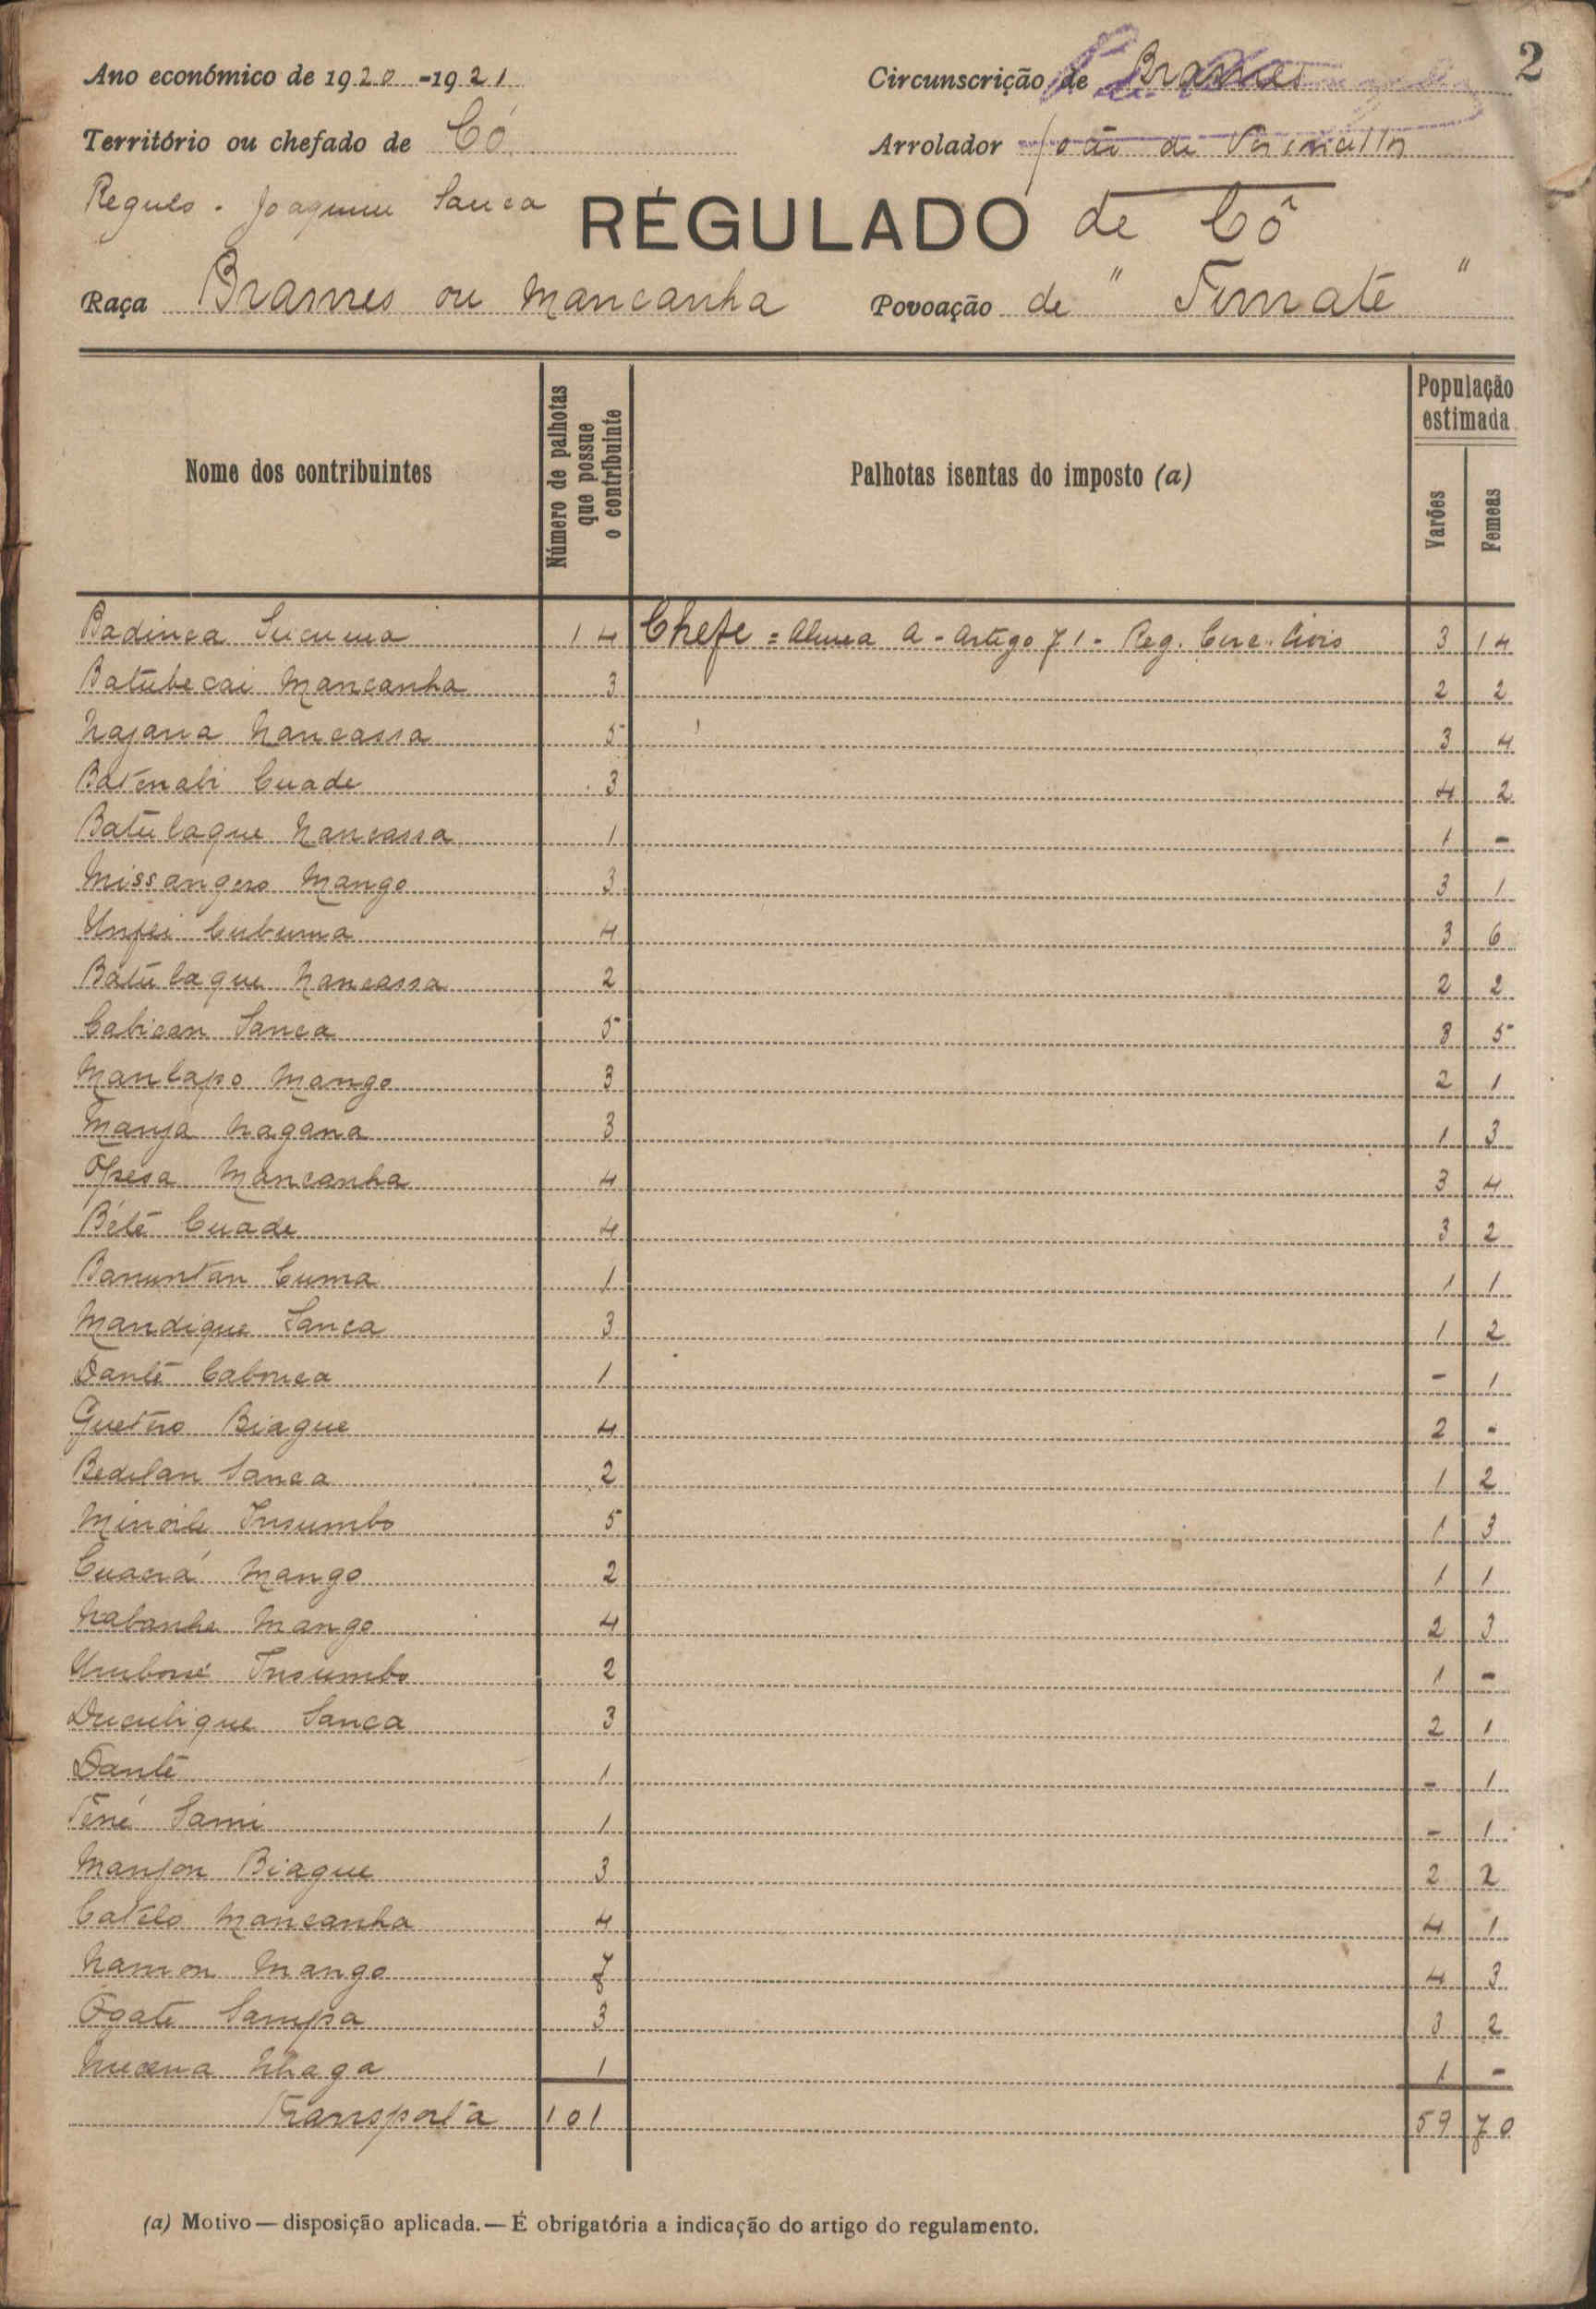 2
Ano económico de 1920-1921 Circunscrição de Brames
Território ou chefado de Có Arrolador João de
Regulo. Joaquim Sanca RÉGULADO de Cô
Raça Brames ou Mancanha Povoação de "Timate"
Nome dos contribuintes Número de palhotas que possue o contribuinte Palhotas isentas do imposto (a) População estimada Varões Femeas
Badinca 14 Chefe = Alinea A - Artigo 71 - Reg. Circ. Civis 3 14
Batubecai Mancanha 3 2 2
Najana Nancassa 5 3 4
Batenabi Cuade 3 4 2
Batulaque Nancassa 1 1 -
Missangero Mango 3 3 1
Unfei Cubuma 4 3 6
Batulaque Nancassa 2 2 2
Cabican Sanca 5 3 5
Manlapo Mango 3 2 1
Manja Nagana 3 1 3
Opesa Mancanha 4 3 4
Bélé Cuade 4 3 2
Banuntan Cuma 1 1 1
Mandique Sanca 3 1 2
Danlé Cabouca 1 - 1
Quetero Biague 4 2 -
Bedelan Sanca 2 1 2
Minoile Insumbo 5 1 3
Mango 2 1 1
Nabanha Mango 4 2 3
Insumbo 2 1 -
Duculique Sanca 3 2 1
Danlé 1 - 1
Tené Sami 1 - 1
Manjon Biague 3 2 2
Catelo Mancanha 4 4 1
Namon Mango 7 4 3
Ogate Sampa 3 3 2
Nhaga 1 1 -
Transporta 101 59 70
(a) Motivo — disposição aplicada. — É obrigatória a indicação do artigo do regulamento.